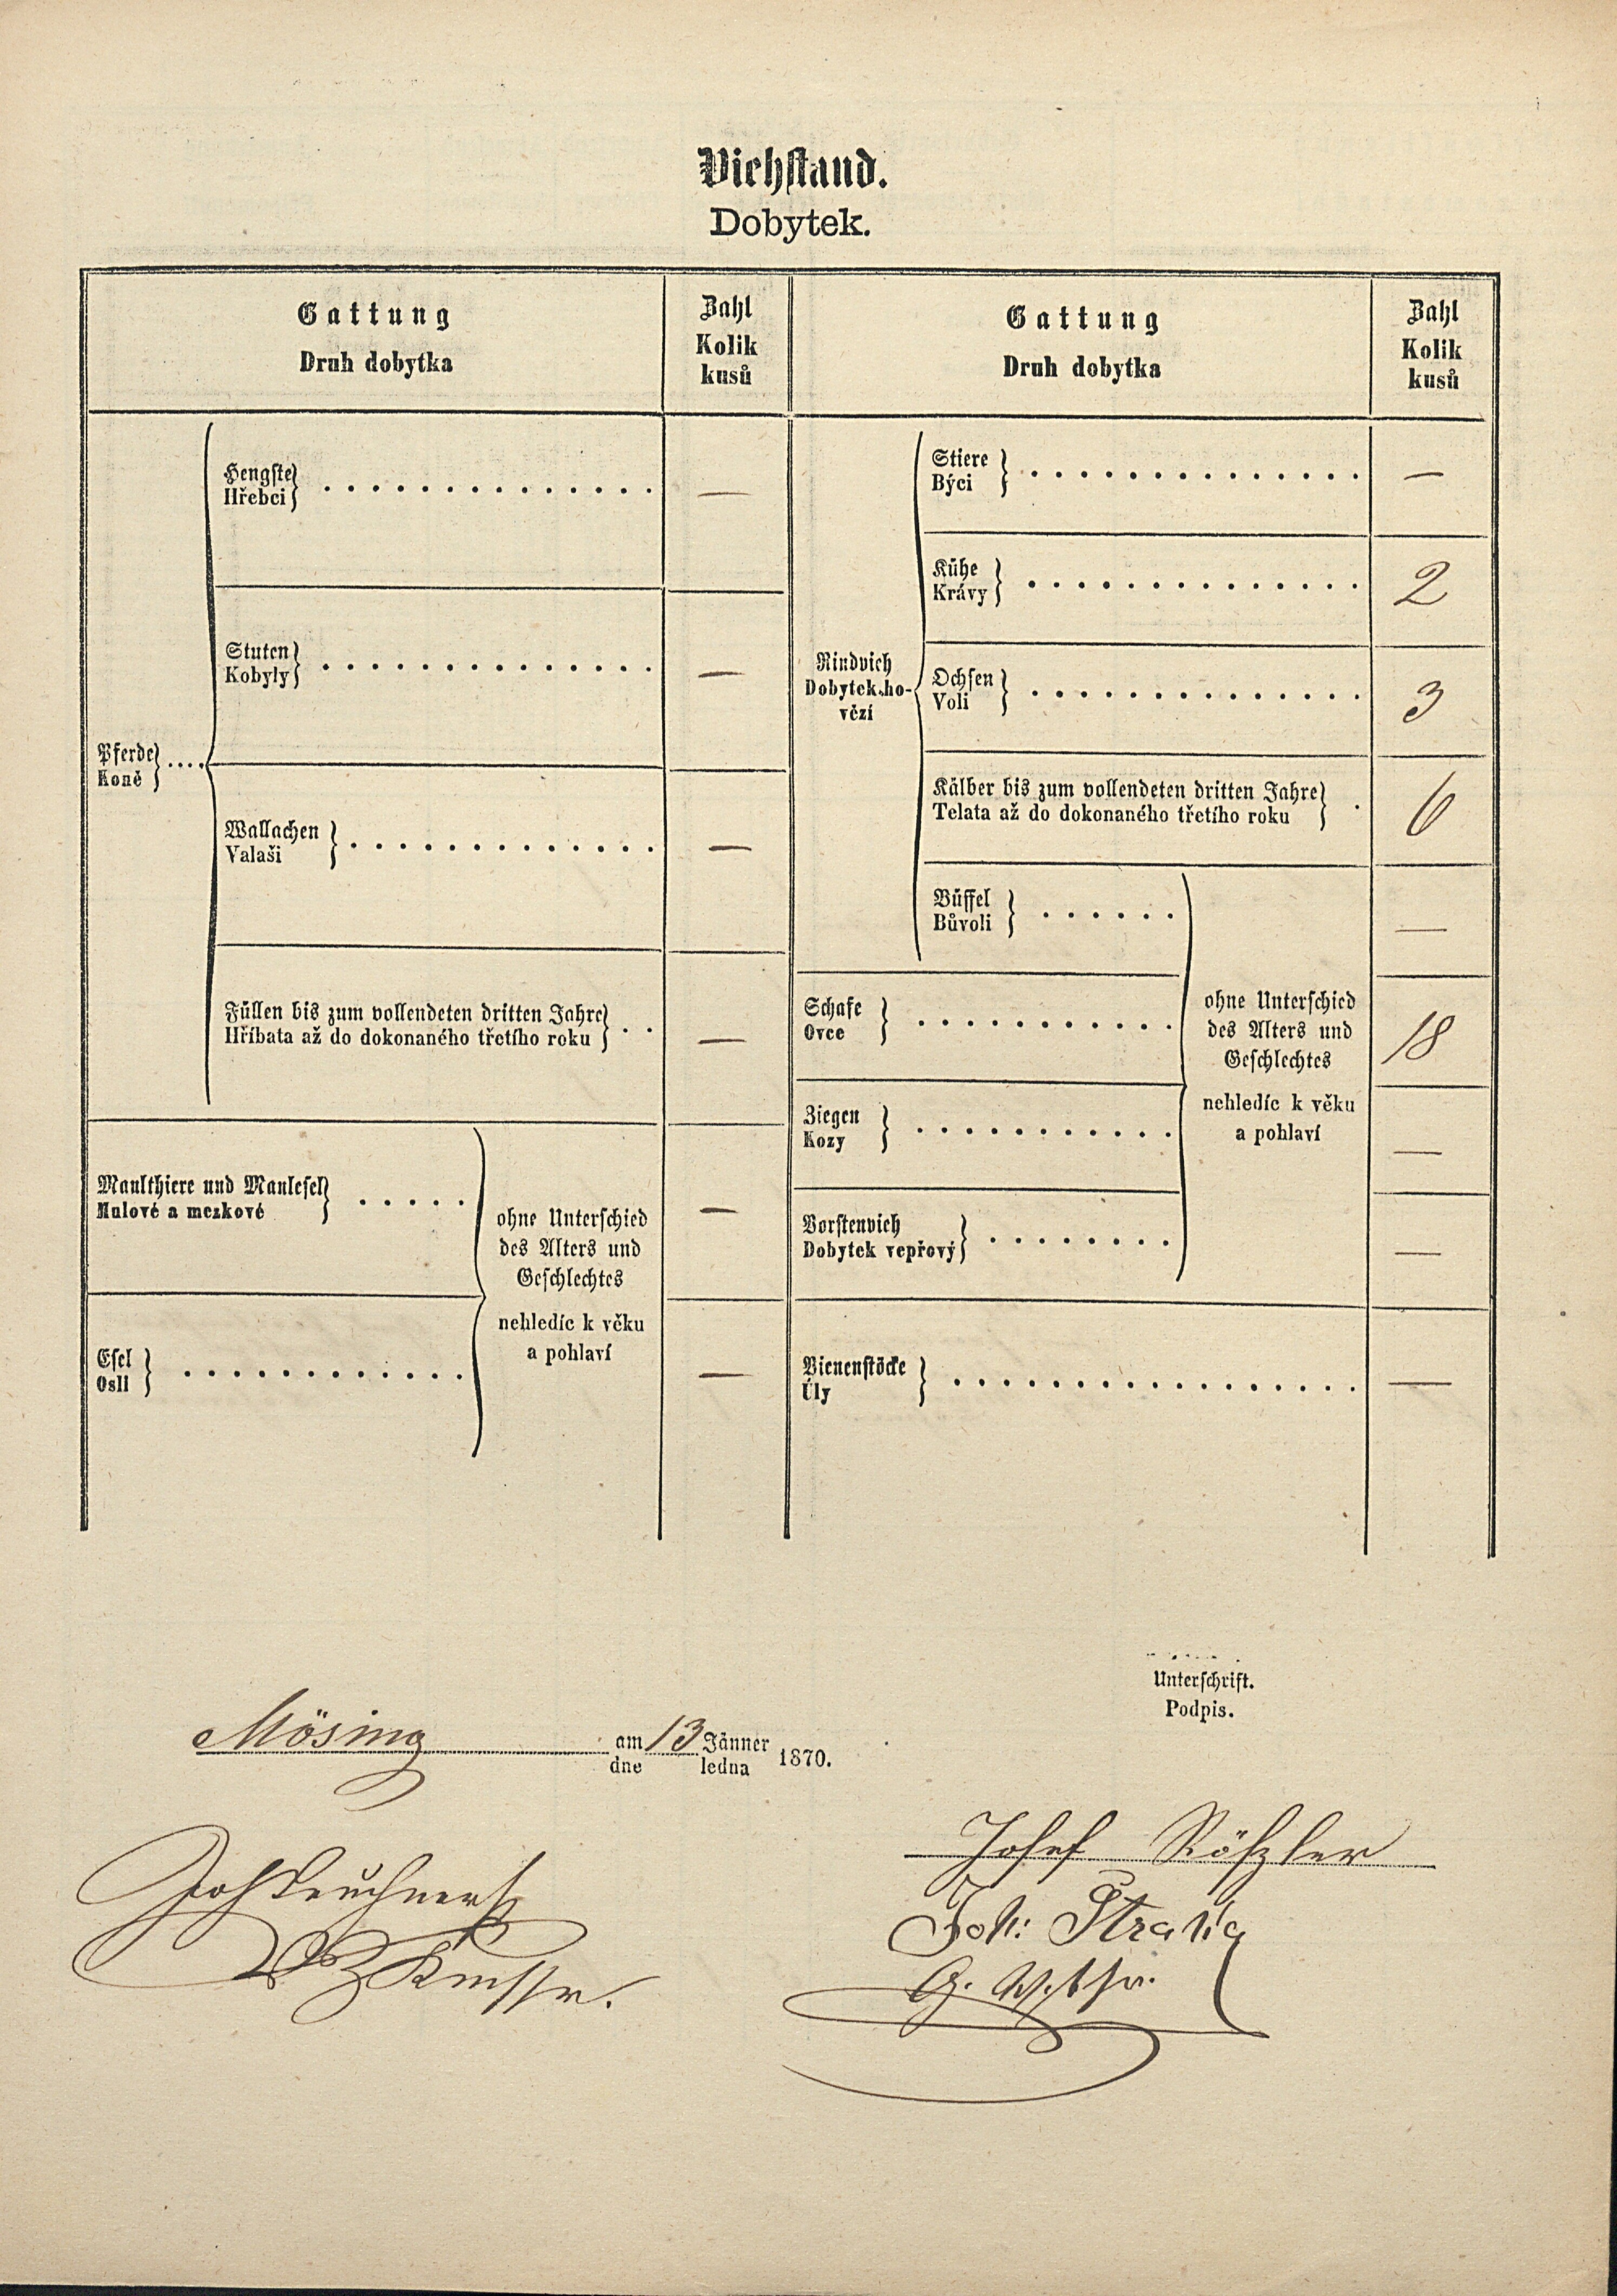 Viehstand.
Dobytek.
Gattung
Druh dobytka
Zahl
Kolik
kusů
Pferde
Koně
Hengste
Hřebci
—
Stuten
Kobyly
—
Wallachen
Valaši
—
Füllen bis zum vollendeten dritten Jahre
Hříbata až do dokonaného třetího roku
—
Maulthiere und Maulesel
Mulové a mezkové
—
Esel
Osli
—
ohne Unterschied
des Alters und
Geschlechtes
nehledíc k věku
a pohlaví
Gattung
Druh dobytka
Zahl
Kolik
kusů
Rindvieh
Dobytek ho-
vězí
Stiere
Býci
—
Kühe
Krávy
2
Ochsen
Voli
3
Kälber bis zum vollendeten dritten Jahre
Telata až do dokonaného třetího roku
6
Büffel
Bůvoli
—
Schafe
Ovce
18
Ziegen
Kozy
—
Borstenvieh
Dobytek vepřový
—
ohne Unterschied
des Alters und
Geschlechtes
nehledíc k věku
a pohlaví
Bienenstöcke
Úly
—
Unterschrift.
Podpis.
Mösing am 13 Jänner 1870.
dne ledna
Josef
Joh:
G.